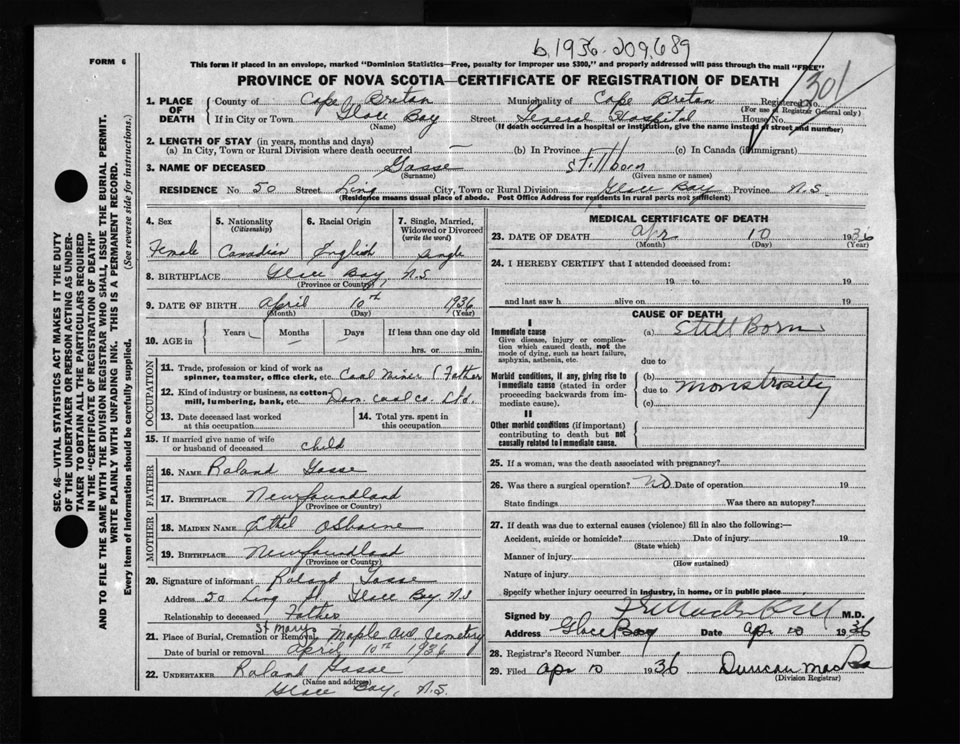 b.1936-209689
FORM 6
This form if placed in an envelope, marked "Dominion Statistics—Free, penalty for improper use $300," and properly addressed will pass through the mail "FREE"
PROVINCE OF NOVA SCOTIA—CERTIFICATE OF REGISTRATION OF DEATH
301
1. PLACE OF DEATH { County of Cape Breton Municipality of Cape Breton Registered No.
(For use of Registrar General only)
If in City or Town Glace Bay Street General Hospital House No.
(Name) (If death occurred in a hospital or institution, give the name instead of street and number)
2. LENGTH OF STAY (in years, months and days)
(a) In City, Town or Rural Division where death occurred — (b) In Province (c) In Canada (if immigrant)
3. NAME OF DECEASED Gosse Stillborn
(Surname) (Given name or names)
RESIDENCE No. 50 Street Ling City, Town or Rural Division Glace Bay Province N.S
(Residence means usual place of abode. Post Office Address for residents in rural parts not sufficient)
SEC. 46—VITAL STATISTICS ACT MAKES IT THE DUTY
OF THE UNDERTAKER OR PERSON ACTING AS UNDER-
TAKER TO OBTAIN ALL THE PARTICULARS REQUIRED
IN THE "CERTIFICATE OF REGISTRATION OF DEATH"
AND TO FILE THE SAME WITH THE DIVISION REGISTRAR WHO SHALL ISSUE THE BURIAL PERMIT.
WRITE PLAINLY WITH UNFADING INK. THIS IS A PERMANENT RECORD.
Every item of Information should be carefully supplied. (See reverse side for instructions.)
4. Sex 5. Nationality (Citizenship) 6. Racial Origin 7. Single, Married, Widowed or Divorced (write the word)
Female Canadian English Single
8. BIRTHPLACE Glace Bay, N.S
(Province or Country)
9. DATE OF BIRTH April 10th 1936
(Month) (Day) (Year)
10. AGE in { Years Months Days If less than one day old
— — — hrs. or min.
OCCUPATION
11. Trade, profession or kind of work as
spinner, teamster, office clerk, etc. Coal Miner (Father
12. Kind of industry or business, as cotton
mill, lumbering, bank, etc. Dom. Coal Co. Ltd.
13. Date deceased last worked at this occupation 14. Total yrs. spent in this occupation
15. If married give name of wife
or husband of deceased child
FATHER
16. NAME Roland Gosse
17. BIRTHPLACE Newfoundland
(Province or Country)
MOTHER
18. MAIDEN NAME Ethel Osborne
19. BIRTHPLACE Newfoundland
(Province or Country)
20. Signature of informant Roland Gosse
Address 50 Ling St. Glace Bay N.S
Relationship to deceased Father
St Marys
21. Place of Burial, Cremation or Removal Maple Cemetery
Date of burial or removal April 10th 1936
22. UNDERTAKER Roland Gosse
(Name and address)
Glace Bay, N.S.
MEDICAL CERTIFICATE OF DEATH
23. DATE OF DEATH Apr 10 1936
(Month) (Day) (Year)
24. I HEREBY CERTIFY that I attended deceased from:
19 to 19
and last saw h alive on 19
CAUSE OF DEATH
I
Immediate cause (a) Still Born
Give disease, injury or complica-
tion which caused death, not the
mode of dying, such as heart failure,
asphyxia, asthenia, etc. due to
Morbid conditions, if any, giving rise to (b)
immediate cause (stated in order due to Monstrosity
proceeding backwards from im-
mediate cause). (c)
II
Other morbid conditions (if important)
contributing to death but not
causally related to immediate cause.
25. If a woman, was the death associated with pregnancy?
26. Was there a surgical operation? No Date of operation 19
State findings Was there an autopsy?
27. If death was due to external causes (violence) fill in also the following:—
Accident, suicide or homicide? Date of injury 19
(State which)
Manner of injury
(How sustained)
Nature of injury
Specify whether injury occurred in industry, in home, or in public place
Signed by M.D.
Address Glace Bay Date Apr 10 1936
28. Registrar's Record Number
29. Filed Apr 10 1936 Duncan MacRa
(Division Registrar)